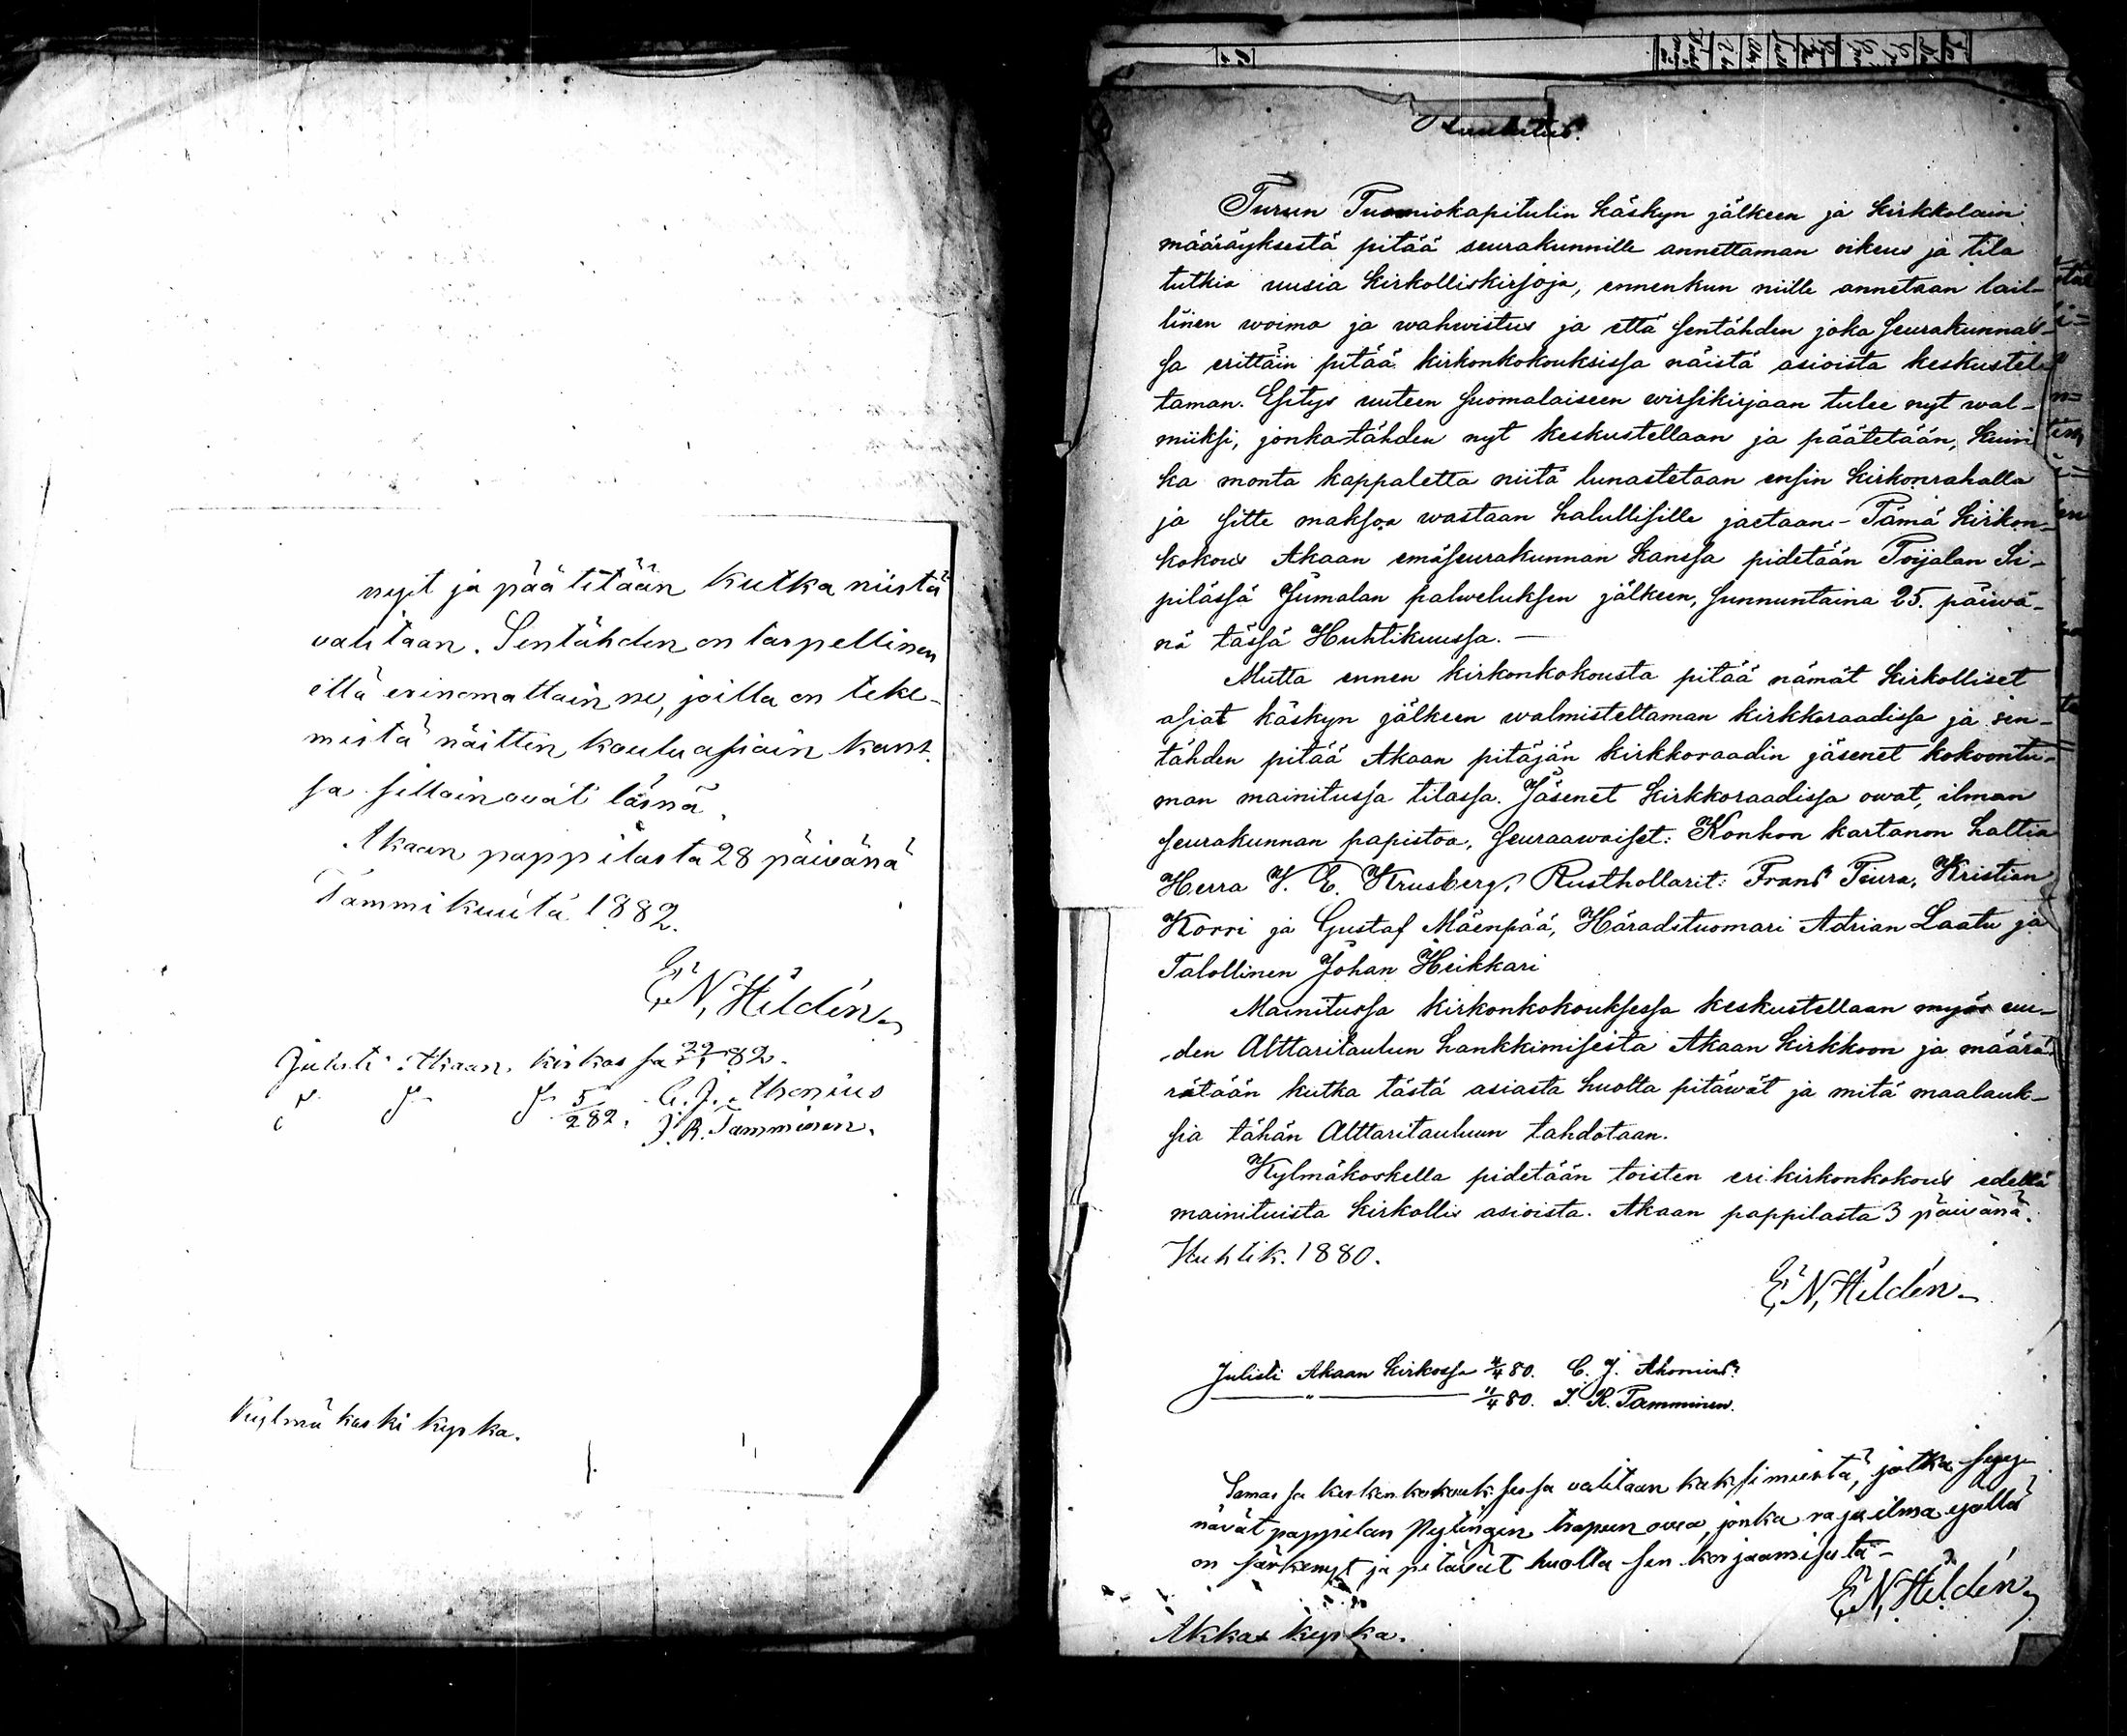 nyit ja päätetään kutka niistä
valitaan. Sentähden on tarpellinen
että erinomattain ne, joilla on teke-
mistä näitten kouluasiain kans-
sa silloin ovat läsnä.
Akaan pappilasta 28 päivänä
Tammikuuta 1882.
E. N. Hildén
Julisti Akaan kirkossa 29/1 82.
5/2 82. J. R. Tamminen.
Kylmäkoski kyrka.
Kuulutus.
Turun Tuomiokapitulin käskyn jälkeen ja kirkkolain
määräyksestä pitää seurakunnille annettaman oikeus ja tila
tutkia uusia kirkolliskirjoja, ennenkun niille annetaan lail-
linen woima ja wahwistus ja että sentähden joka seurakunnas-
sa erittäin pitää kirkonkokouksissa näistä asioista keskustel-
taman. Esitys uuteen suomalaiseen wirsikirjaan tulee nyt wal-
miiksi, jonka tähden nyt keskustellaan ja päätetään, kuin
ka monta kappaletta niitä lunastetaan ensin kirkonrahalla
ja sitte maksoa wastaan halullisille jaetaan. - Tämä kirkon-
kokous Akaan emäseurakunnan kanssa pidetään Toijalan Si-
pilässä Jumalan palweluksen jälkeen, sunnuntaina 25. päiwä-
nä tässä Huhtikuussa. -
Mutta ennen kirkonkokousta pitää nämät kirkolliset
asiat käskyn jälkeen walmisteltaman kirkkoraadissa ja sen-
tähden pitää Akaan pitäjän kirkkoraadin jäsenet kokoontu-
man mainitussa tilassa. Jäsenet kirkkoraadissa owat, ilman
seurakunnan papistoa, seuraawaiset: Konhon kartanon haltia
Herra V. E. Krusberg, Rusthollarit: Frans Peura, Kristian
Korri ja Gustaf Mäenpää, Häradstuomari Adrian Laatu ja
Talollinen Johan Heikkari
Mainitussa kirkonkokouksessa keskustellaan myös uu-
den Alttaritaulun hankkimisesta Akaan kirkkoon ja määrä-
rätään kutka tästä asiasta huolta pitäwät ja mitä maalauk-
sia tähän Alttaritauluun tahdotaan.
Kylmäkoskella pidetään toisten eri kirkonkokous edellä
mainituista kirkollis asioista. Akaan pappilasta 3 päivänä
Huhtik. 1880.
E. N. Hildén
Julisti Akaan kirkossa 4/4 80. C. J. Ahonius
" 11/4 80. J. R. Tamminen.
Samassa kirkonkokouksessa valitaan kaksi miestä, jotka syy-
nävät pappilan Pytingin trapun ovea, jonka raju ilma yöllä
on särkenyt ja pitävät huolta sen korjaamisesta -
E. N. Hildén
Akkas kyrka.